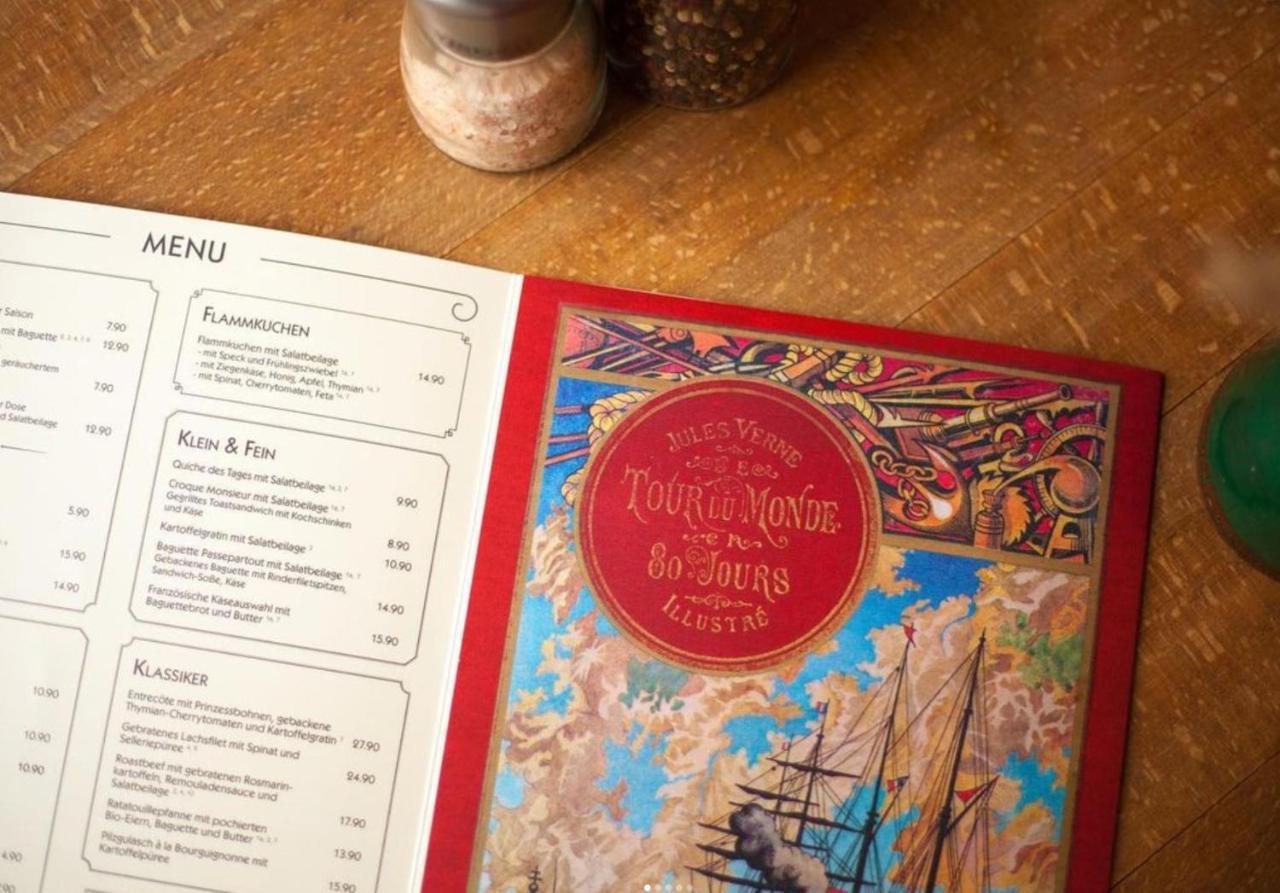 MENU
r Saison
7.90
mit Baguette
12.90
geräuchertem
7.90
r Dose
d Salatbeilage
12.90
5.90
15.90
14.90
10.90
10.90
10.90
4.90
FLAMMKUCHEN
Flammkuchen mit Salatbeilage
- mit Speck und Frühlingszwiebel
- mit Ziegenkäse, Honig, Apfel, Thymian
- mit Spinat, Cherrytomaten, Feta
14.90
KLEIN & FEIN
Quiche des Tages mit Salatbeilage
9.90
Croque Monsieur mit Salatbeilage
Gegrilltes Toastsandwich mit Kochschinken
und Käse
8.90
Kartoffelgratin mit Salatbeilage
10.90
Baguette Passepartout mit Salatbeilage
Gebackenes Baguette mit Rinderfiletspitzen,
Sandwich-Soße, Käse
14.90
Französische Käseauswahl mit
Baguettebrot und Butter
15.90
KLASSIKER
Entrecôte mit Prinzessbohnen, gebackene
Thymian-Cherrytomaten und Kartoffelgratin
27.90
Gebratenes Lachsfilet mit Spinat und
Selleriepüree
24.90
Roastbeef mit gebratenen Rosmarin-
kartoffeln, Remouladensauce und
Salatbeilage
17.90
Ratatouillepfanne mit pochierten
Bio-Eiern, Baguette und Butter
13.90
Pilzgulasch à la Bourguignonne mit
Kartoffelpüree
15.90
JULES VERNE
LE
TOUR DU MONDE
EN
80 JOURS
ILLUSTRÉ